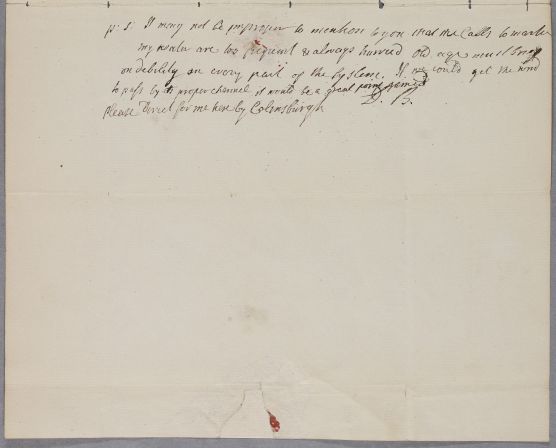 p. s. It may not be improper to mention to you that the Calls to make
my water are too frequent & always hurried old age must bring
on debility on every part of the System. If we could get the wind
to pass by its proper channel it would be a great point gained
D. B.
Please Direct for me here by Colinsburgh